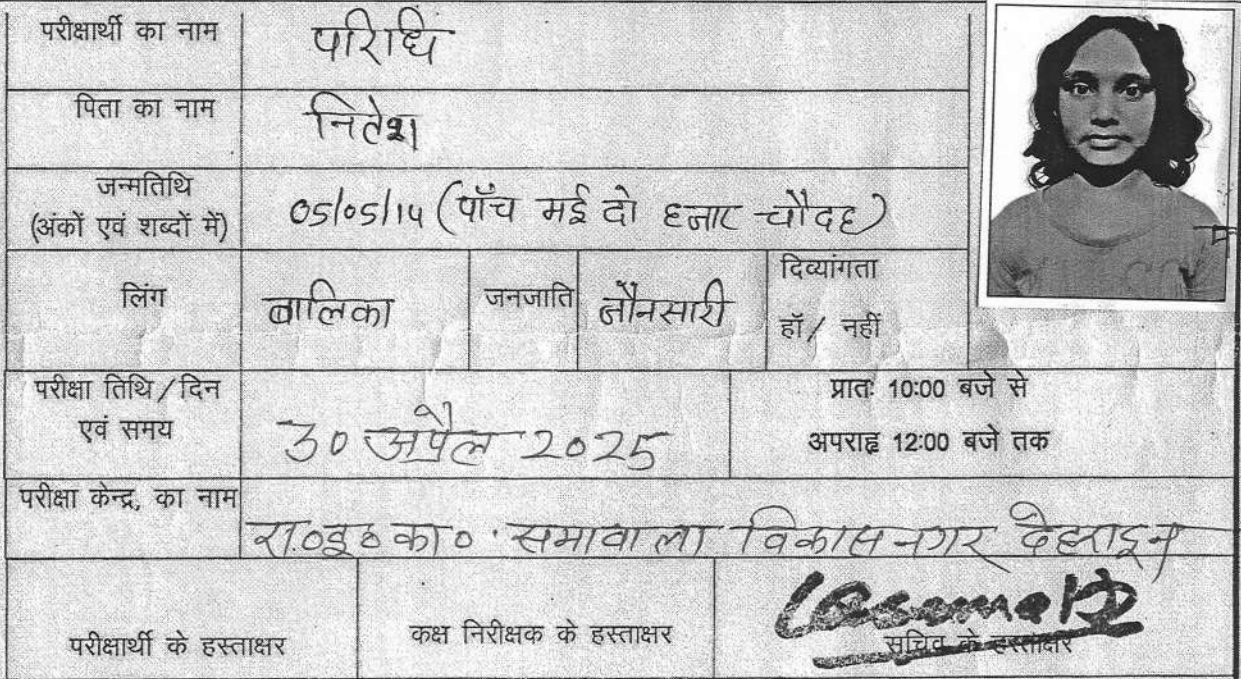 परीक्षार्थी का नाम परिधि
पिता का नाम नितेश
जन्मतिथि
(अंकों एवं शब्दों में) 05/05/14 (पाँच मई दो हजार चौदह)
लिंग बालिका जनजाति जौनसारी दिव्यांगता
हॉ / नहीं
परीक्षा तिथि / दिन
एवं समय 30 अप्रैल 2025 प्रातः 10:00 बजे से
अपराह्न 12:00 बजे तक
परीक्षा केन्द्र, का नाम
रा.०इ०का० सभावाला विकासनगर देहरादून
परीक्षार्थी के हस्ताक्षर कक्ष निरीक्षक के हस्ताक्षर सचिव के हस्ताक्षर